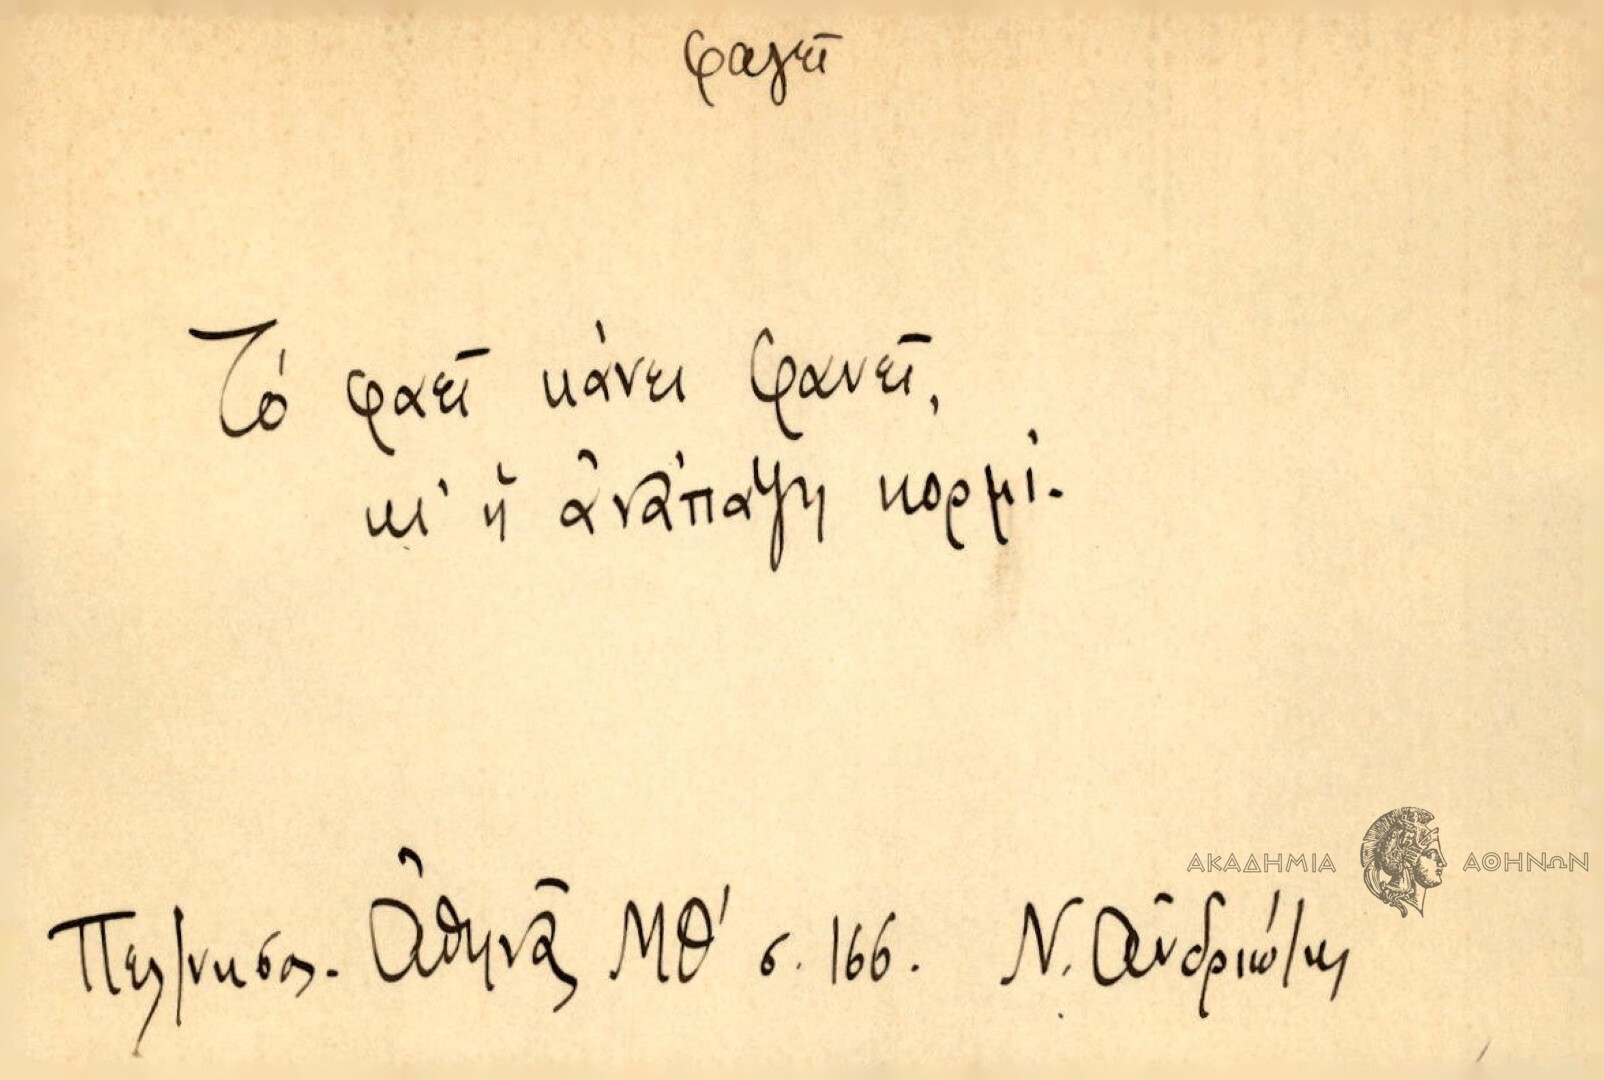 φαγεῖ
Τό φαεῖ κάνει φανεῖ,
κι' ἡ ἀνάπαψη κορμί.
ΑΚΑΔΗΜΙΑ ΑΘΗΝΩΝ
Ἀθηνᾶ ΜΘ' σ. 166. Ν. Ἀνδριώτης